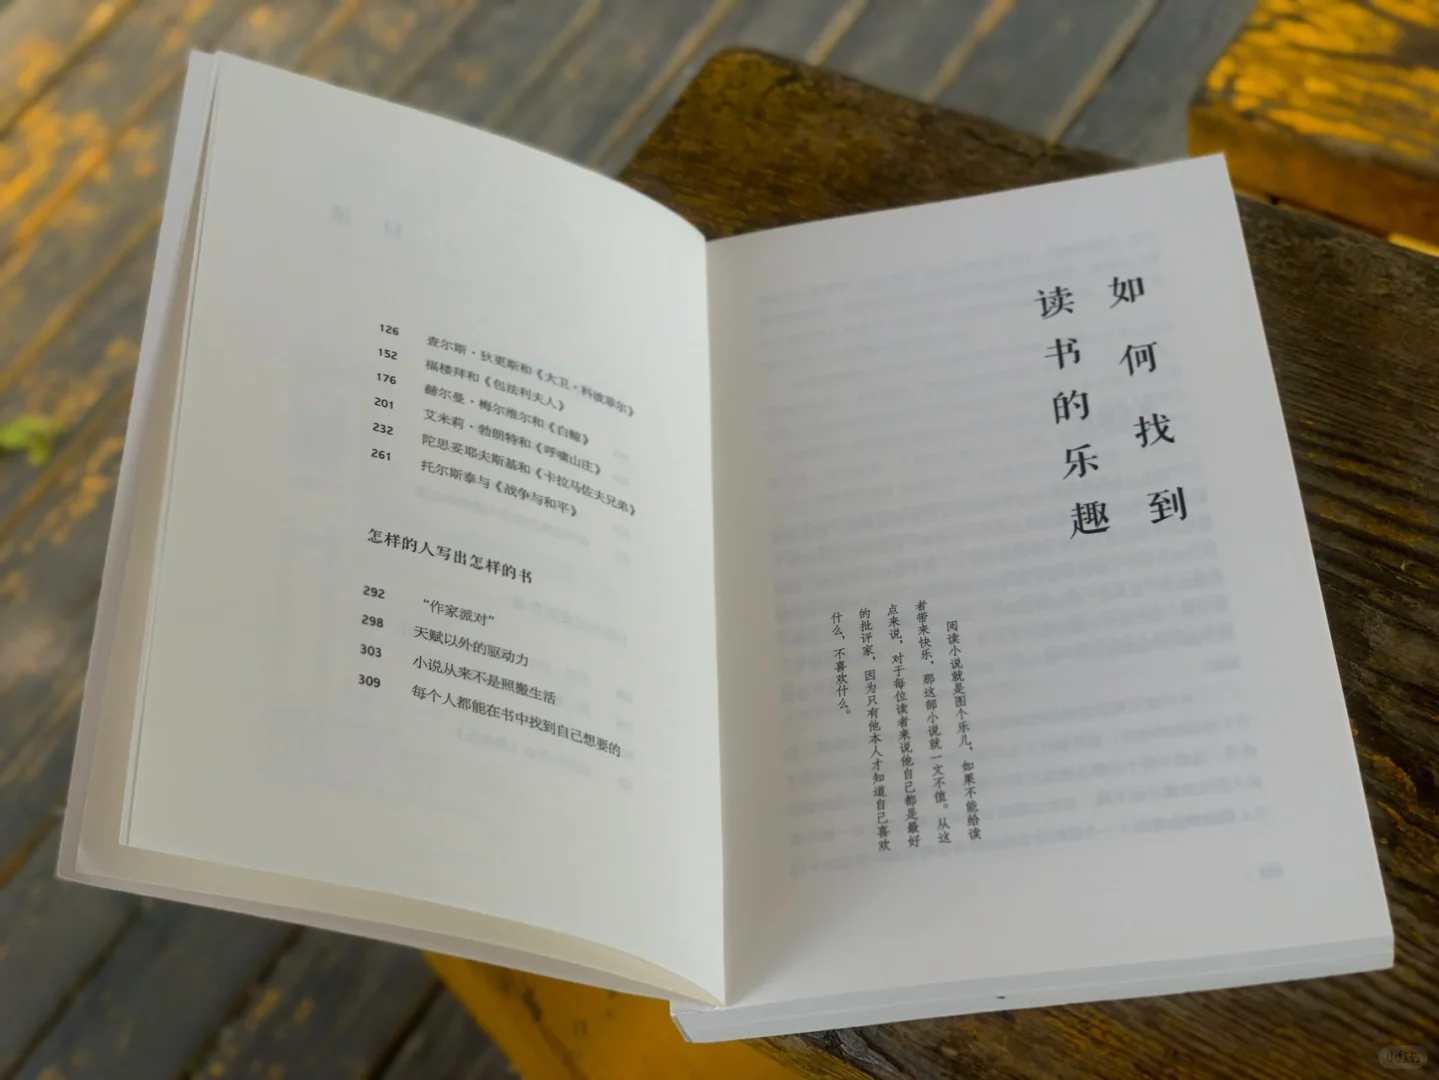 126 查尔斯·狄更斯和《大卫·科波菲尔》
152 福楼拜和《包法利夫人》
176 赫尔曼·梅尔维尔和《白鲸》
201 艾米莉·勃朗特和《呼啸山庄》
232 陀思妥耶夫斯基和《卡拉马佐夫兄弟》
261 托尔斯泰与《战争与和平》
怎样的人写出怎样的书
292 “作家派对”
298 天赋以外的驱动力
303 小说从来不是照搬生活
309 每个人都能在书中找到自己想要的
如何找到
读书的乐趣
阅读小说就是图个乐儿，如果不能给读
者带来快乐，那这部小说就一文不值。从这
点来说，对于每位读者来说他自己都是最好
的批评家，因为只有他本人才知道自己喜欢
什么，不喜欢什么。